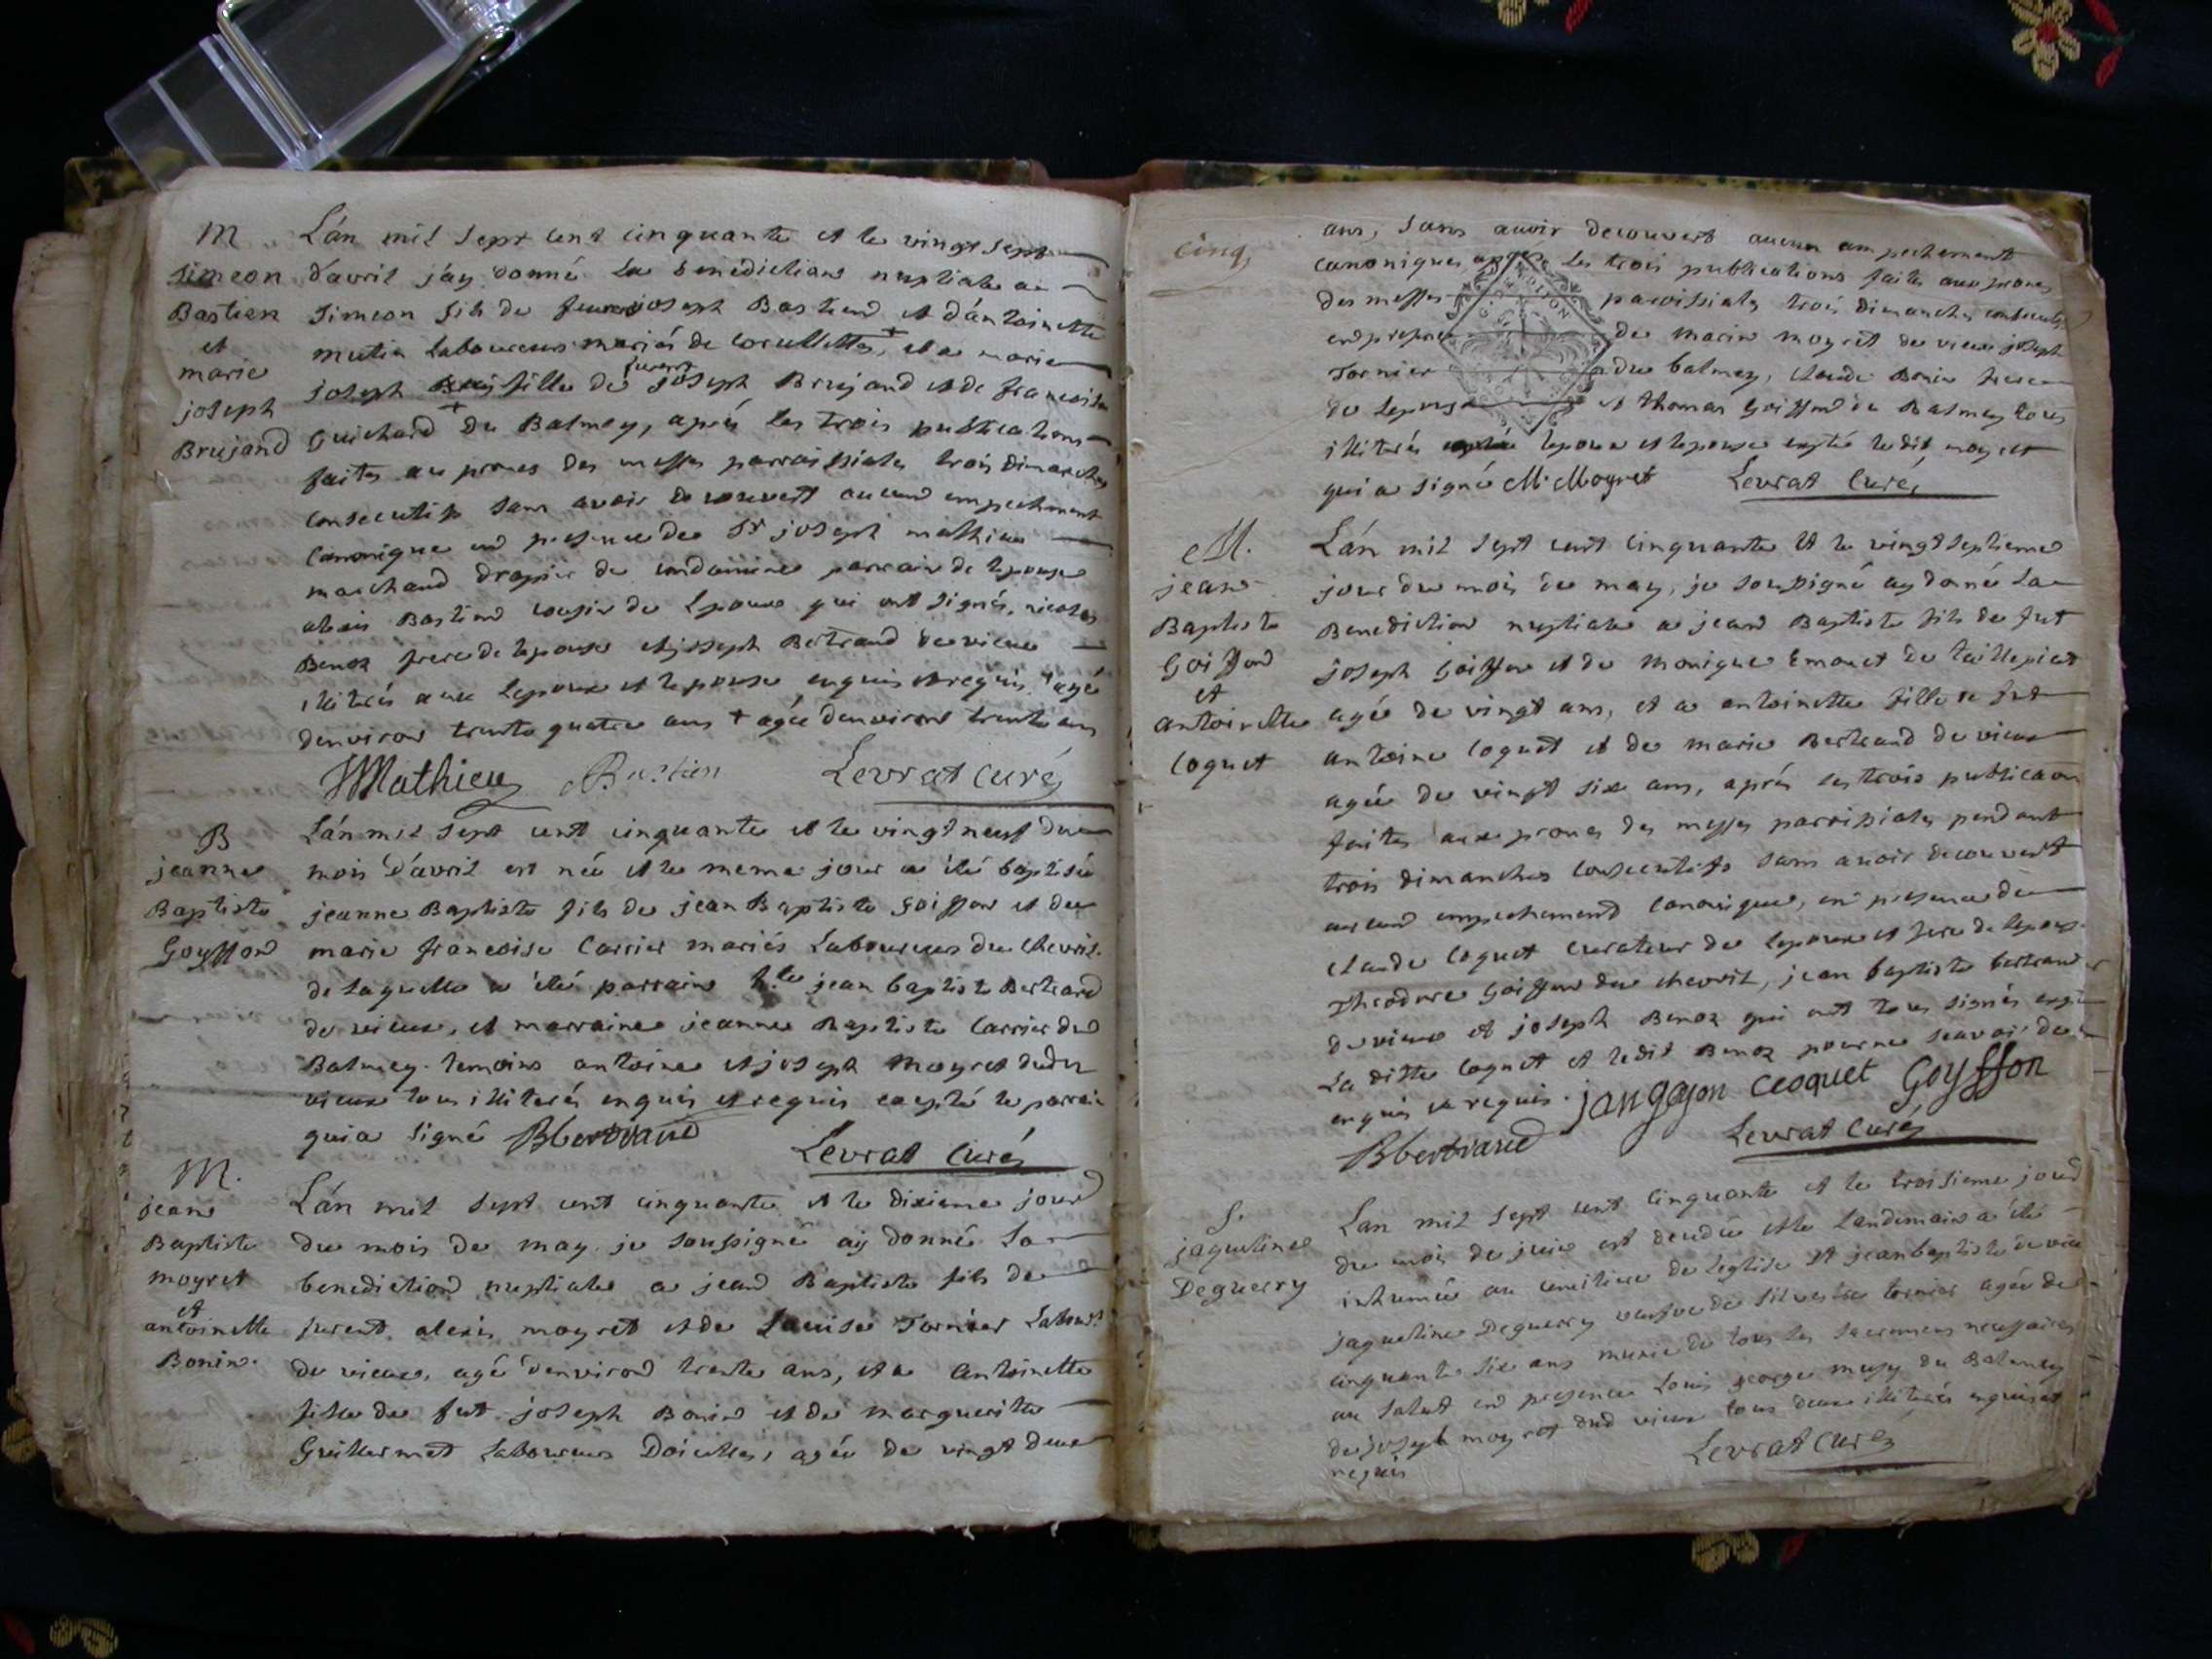 M
Simeon
Bastien
et
marie
joseph
Brujand
Lán mil Sept cent cinquante et le vingt sept
d'avril jáy donné la benediction nuptiale a
Simeon fils de joseph Bastiend et d'antoinette
mutin Laboureurs mariés de corcellettes, et a marie
joseph fille de furent joseph Brujand et de francoise
Guichard du Balmey, aprés les trois publications
faites au prones des messes parroissiales trois dimanches
consecutifs sans avoir decouvert aucund empechement
canonique end presence de Sr joseph mathieu
marchand drappier de condamine parrain de lepouse
alexis Bastiend cousin de lepoux qui ont signés, nicolas
Benoz frere de lepouse et joseph Bertrand de vieux
illiterés avec lepoux et lepouse enquis et requis. + agé
denviron trente quatre ans + agée denvirond trente ans
JMathieu Bastien Levrat Curé
B
jeanne
Baptiste
Goyffond
Lán mil Sept cent cinquante et le vingt neuf du
mois D'avril est née et le meme jour a été baptisée
jeanne Baptiste fils de jean Baptiste goiffon et de
marie francoise Carrier mariés Laboureurs du chevril.
de laquelle a été parrain jean baptiste Bertrand
de vieux, et marraine jeanne Baptiste Carrier dud
Balmey. temoins antoine et joseph moyret dudit
vieux tous illiterés enquis et requis excepté le parrain
qui a signé Bbertrand
Levrat Curé
M.
jean
Baptiste
moyret
et
antoinette
Bonin.
Lán mil Sept cent cinquante et le dixieme jour
du mois de may je soussigné aÿ donné la
benediction nuptiale a jeand Baptiste fils de
furent alexis moyret et de Louise Tornier Labour.
de vieux, agé denvirond trente ans, et a antoinette
fille de fut joseph Bonin et de marguerite
Guillermet Laboureurs Doicelles, agée de vingt deux
cinq
ans, sans avoir decouvert aucun ampechement
canonique, aprés les trois publications faites aux prones
des messes paroissiales trois dimanches consecutifs
end presence de marin moyret de vieux joseph
Tornier du balmey, claude Bonin frere
de lepouse et thomas Goiffond du Balmey tous
illiterés lepoux et lepouse exepté ledit moyret
qui a signé M. Moyret Levrat Curé
M.
jean
Baptiste
Goiffond
et
antoinette
Coquet
Lán mil Sept cent cinquante et le vingt septieme
jour du mois de may, je soussigné ay donné la
Benediction nuptiale a jeand Baptiste fils de fut
joseph Goiffon et de monique Emonet de
agée de vingt ans, et a antoinette fille de fut
antoine Coquet et de marie Bertrand de vieux
agée de vingt six ans, aprés les trois publication
faites aux prones des messes parroissiales pendant
trois dimanches consecutifs sans avoir decouvert
aucund empechement canonique, en presence de
claude Coquet curateur de lepoux et frere de lepouse
Theodore Goiffon du chevril, jean baptiste bertrand
de vieux et joseph Benoz qui ont tous signés excepté
La ditte Coquet et ledit Benoz pour ne scavoir de
enquis et requis. jangoyon Ccoquet Goyffon
Bbertrand Levrat Curé
S.
jaqueline
Deguerry
Lan mil Sept cent cinquante et le troisieme jour
du mois de juin est decedée et le Landemain a été
inhumée au cimitiere de leglise St jean baptiste de vieu
jaqueline Deguerry veufve de Silvestre tornier agée de
cinquante six ans munie de tous les sacremens necessaires
au salut end presence Louis george mugy du Balmey
de joseph moyret dud vieux tous deux illiterés enquis et
requis
Levrat Curé